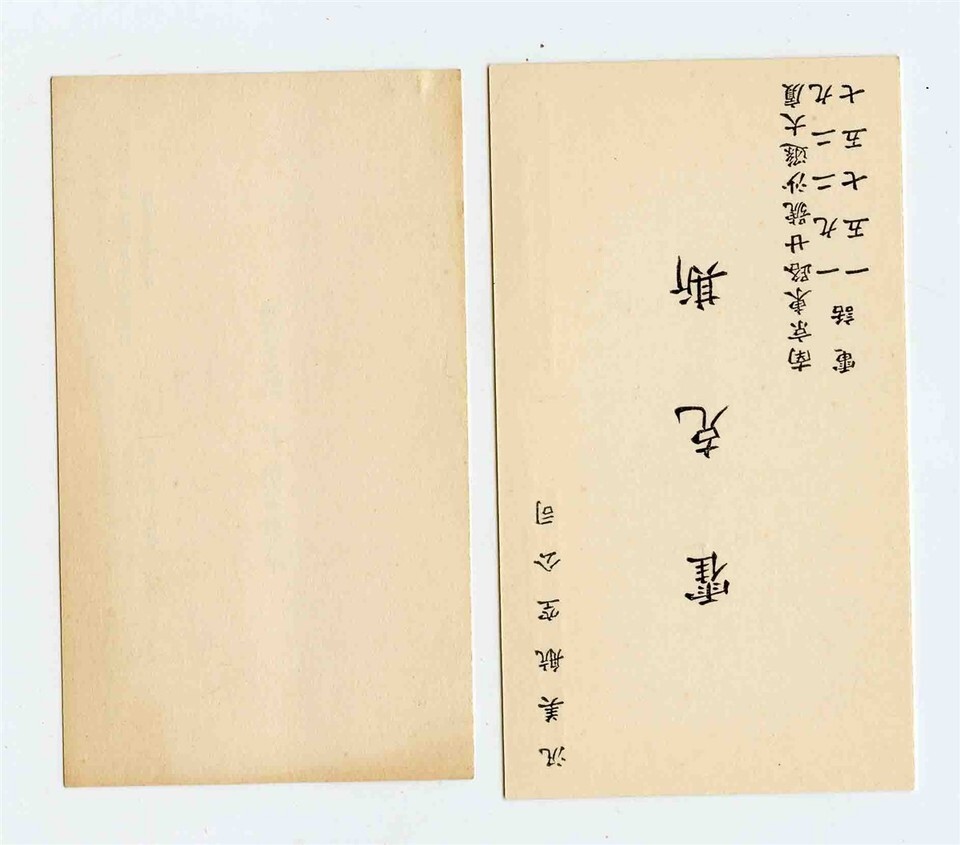 汎美航空公司
霍克斯
南京東路廿號沙遜大廈
電話 一九二二九
一五七五七